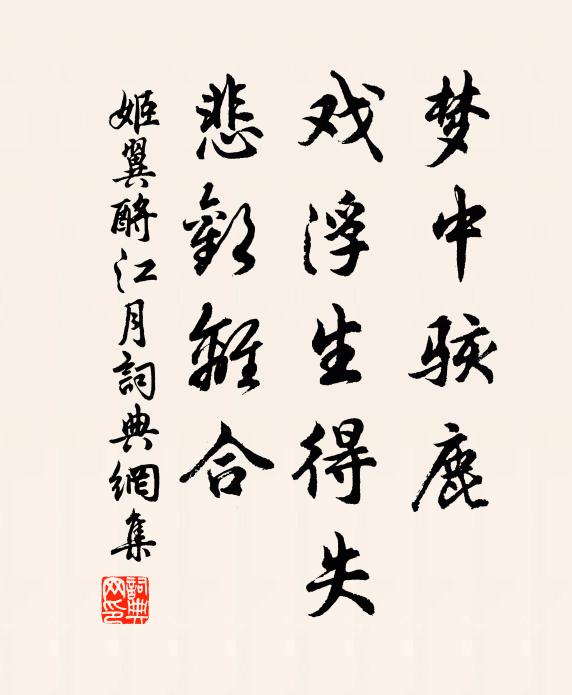 梦中骇鹿
戏浮生得失
悲歡離合
姬翼酹江月詞典網集
詞典网印